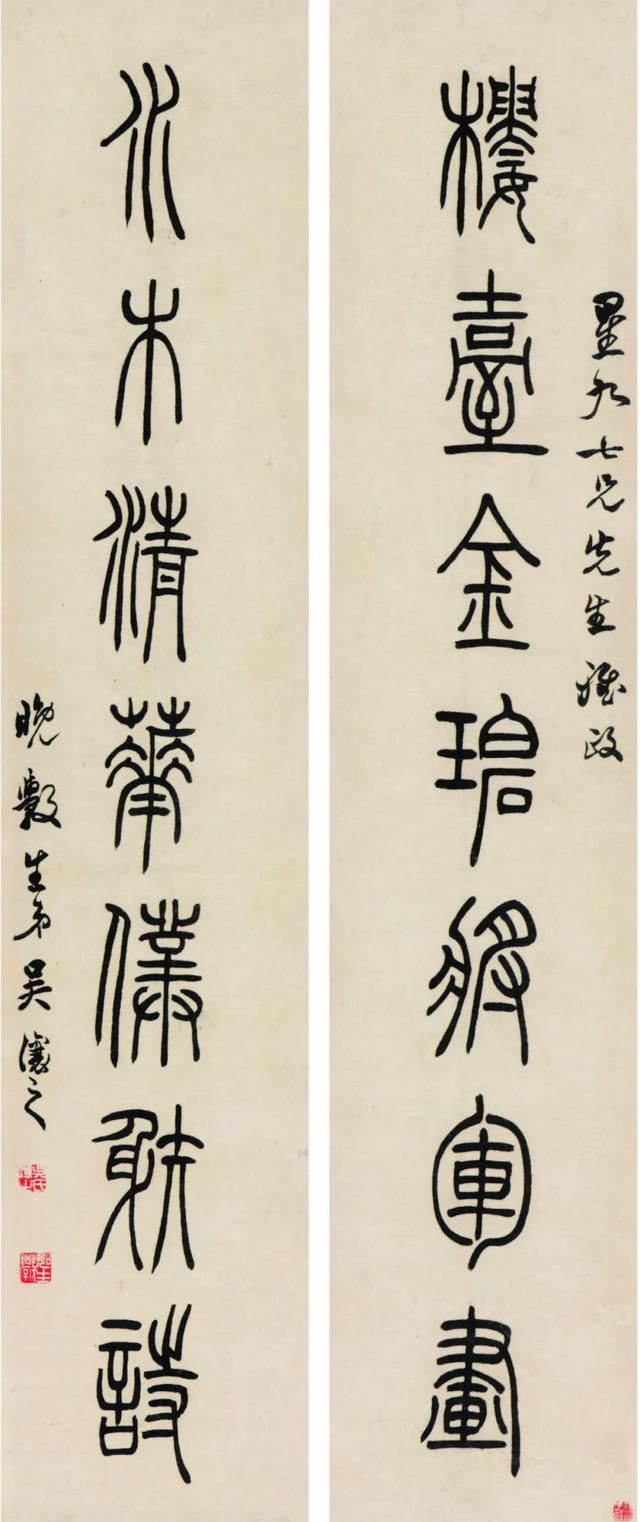 星九七兄先生雅政
樓臺金碧將軍畫
水木清華僕射詩
晚斆生弟吳讓之